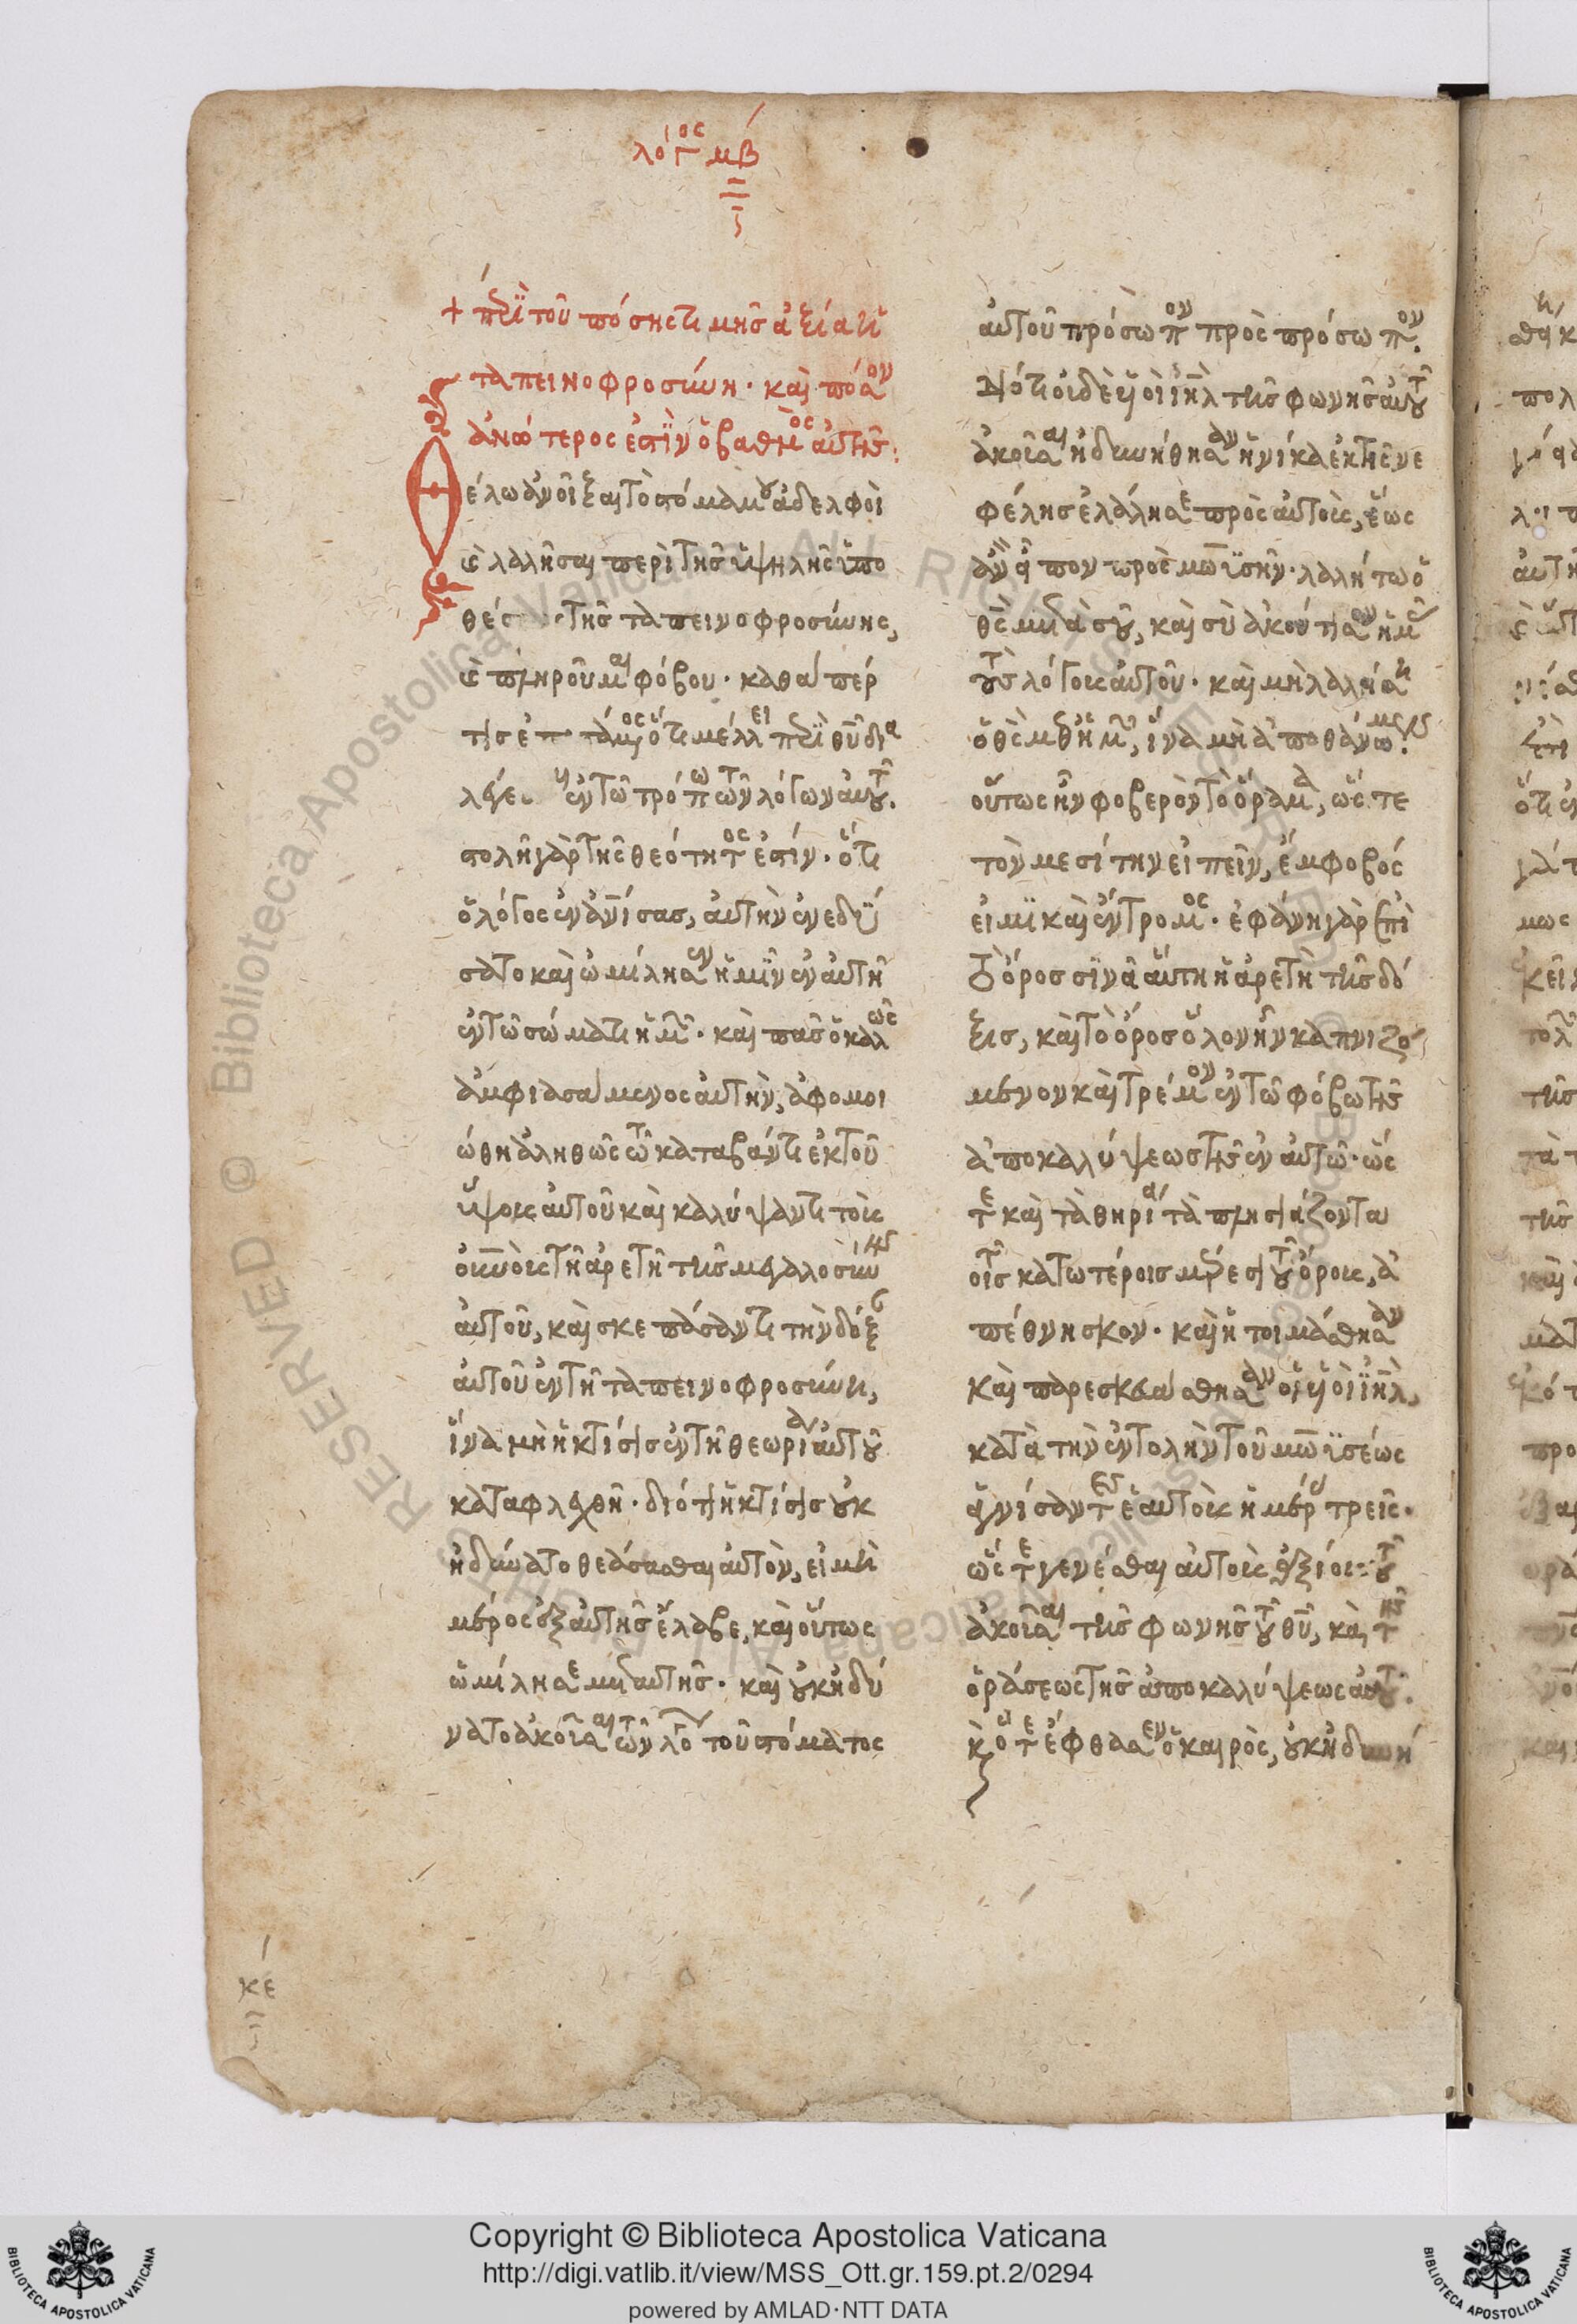 λόγος μβ
+ περὶ τοῦ πόσης τιμῆς ἀξία ἡ
ταπεινοφροσύνη· καὶ πόσον
ἀνώτερος ἐστὶν ὁ βαθμὸς αὐτῆς:
Θέλω ἀνοῖξαι τὸ στόμα μου ἀδελφοὶ
καὶ λαλῆσαι περὶ τῆς ὑψηλῆς ὑπο
τῆς ταπεινοφροσύνης,
καὶ πληροῦμαι φόβου· καθάπερ
τις ὅτι μέλλει περὶ θυ δια
ἐν τῷ τρόπω τῶν λόγων αὐτοῦ.
στολὴ γὰρ τῆς θεότητος ἐστίν· ὅτι
ὁ λόγος ἐνανίσας, αὐτὴν ἐνεδύ
σατο καὶ ὡμίλησεν ἡμῖν ἐν αὐτῆ
ἐν τῶ σώματι ἡμῶν· καὶ πᾶς ὁ καλῶς
ἀμφιασάμενος αὐτὴν, ἀφομοι
ώθη ἀληθῶς τῶ καταβάντι ἐκ τοῦ
ὕψους αὐτοῦ καὶ καλύψαντι τοὺς
τῆ ἀρετῆ τῆς μεγαλοσύνης
αὐτοῦ, καὶ σκεπάσαντι τὴν δόξαν
αὐτοῦ ἐν τῆ ταπεινοφροσύνη,
ἵνα μὴ ἡ κτίσις ἐν τῆ θεωρίαν αὐτοῦ
καταφλεχθῆ· διότι ἡ κτίσις οὐκ
ἠδύνατο θεάσασθαι αὐτὸν, εἰ μὴ
μέρος ἐξ αὐτῆς ἔλαβε, καὶ οὕτως
ὡμίλησε μετ αὐτῆς· καὶ οὐκ ἠδύ
νατο ἀκοῦσαι τῶν λόγων τοῦ στόματος
αὐτοῦ πρόσωπον πρὸς πρόσωπον.
διότι οὐδὲ υἱοὶ ιηλ τῆς φωνῆς αὐτοῦ
ἀκοῦσαι ἠδυνήθησαν ἡνίκα ἐκ τῆς νε
φέλης ἐλάλησε πρὸς αὐτοὺς, ἕως
ἂν εἶπον πρὸς μωϋσῆν· λαλήτω ὁ
θς μετὰ σοῦ, καὶ σὺ ἀκούτισον ἡμᾶς
τοὺς λόγους αὐτοῦ· καὶ μὴ λαλήση
ὁ θς μεθ ἡμῶν, ἵνα μὴ ἀποθάνωμεν.
οὕτως ἦν φοβερὸν τὸ ὅραμα, ὥστε
τὸν μεσίτην εἰπεῖν, ἔμφοβός
εἰμι καὶ ἔντρομος· ἐφάνη γὰρ ἐπὶ
τὸ ὄρος σϊνᾶ αὕτη ἡ ἀρετὴ τῆς δό
ξης, καὶ τὸ ὄρος ὅλον ἦν καπνιζό
μενον καὶ τρέμον ἐν τῶ φόβω τῆς
ἀποκαλύψεως τῆς ἐν αὐτῶ· ὥσ
τε καὶ τὰ θηρία τὰ πλησιάζοντα
τοῖς κατωτέροις μέρεσι τοῦ ὄρους, ἀ
πέθνησκον· καὶ ἡτοιμάσθησαν
καὶ παρεσκευάσθησαν οἱ υἱοὶ ιηλ,
κατὰ τὴν ἐντολὴν τοῦ μωϋσέως
ἁγνίσαντες ἑαυτοὺς ἡμέρας τρεῖς·
ὥστε γενέσθαι αὐτοὺς ἀξίους τοῦ
ἀκοῦσαι τῆς φωνῆς τοῦ θυ, καὶ τῆς
ὁράσεως τῆς ἀποκαλύψεως αὐτοῦ.
καὶ ὅτε ἔφθασεν ὁ καιρὸς, οὐκ ἠδυνή
κε
Copyright © Biblioteca Apostolica Vaticana
http://digi.vatlib.it/view/MSS_Ott.gr.159.pt.2/0294
powered by AMLAD·NTT DATA
BIBLIOTECA APOSTOLICA VATICANA
BIBLIOTECA APOSTOLICA VATICANA